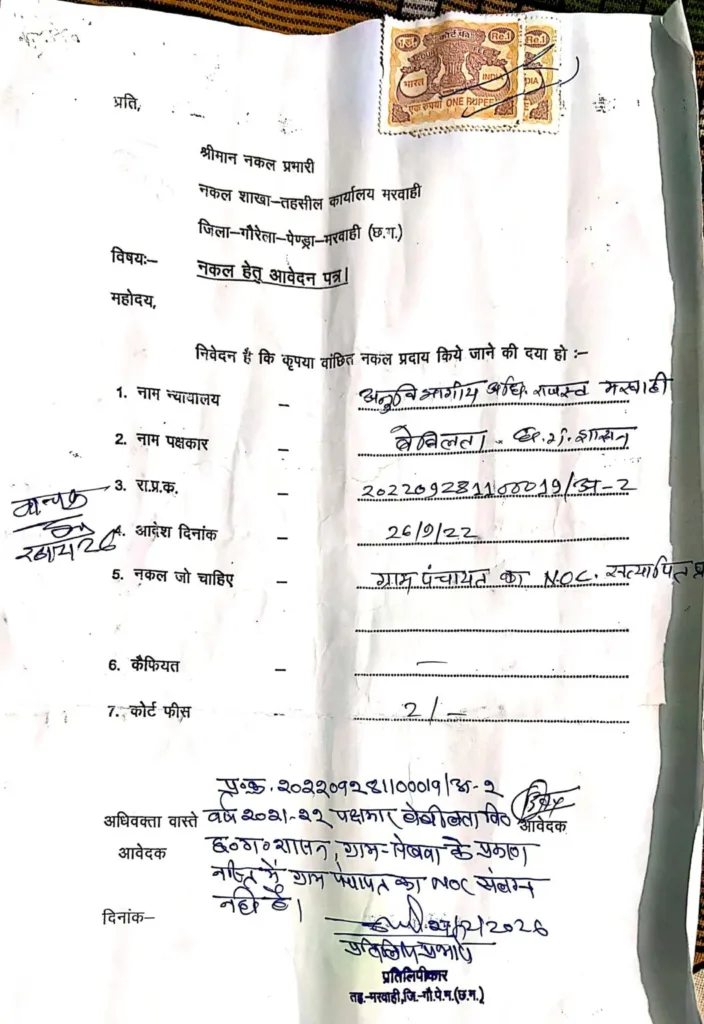 कोर्ट फी
Re.1
भारत
INDIA
एक रुपया ONE RUPEE
प्रति,
श्रीमान नकल प्रभारी
नकल शाखा–तहसील कार्यालय मरवाही
जिला–गौरेला–पेण्ड्रा–मरवाही (छ.ग.)
विषयः–
नकल हेतू आवेदन पत्र।
महोदय,
निवेदन है कि कृपया वांछित नकल प्रदाय किये जाने की दया हो :–
1. नाम न्यायालय – अनुविभागीय अधि. राजस्व मरवाही
2. नाम पक्षकार – बेबीलता - छ.ग. शासन
3. रा.प्र.क. – 202209281100019/अ-2
4. आदेश दिनांक – 26/9/22
5. नकल जो चाहिए – ग्राम पंचायत का N.O.C. सत्यापित
6. कैफियत – —
7. कोर्ट फीस – 2/–
प्र.क्र. 202209281100019/अ-2
अधिवक्ता वास्ते
वर्ष 2021-22 पक्षकार बेबीलता वि०
आवेदक
आवेदक
छ०ग० शासन, ग्राम- के प्रकरण
नस्ति में ग्राम पंचायत का NOC संलग्न
नहीं है।
दिनांक–
/2/2026
प्रतिलिपिकार
तह.–मरवाही,जि.–गौ.पे.म.(छ.ग.)